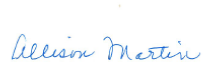 Allison Martin